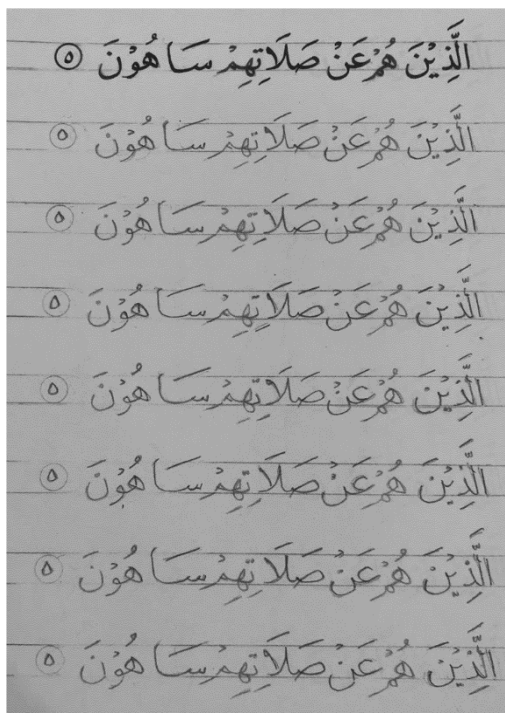 الَّذِيْنَ هُمْ عَنْ صَلَاتِهِمْ سَاهُوْنَ ٥
الَّذِيْنَ هُمْ عَنْ صَلَاتِهِمْ سَاهُوْنَ ٥
الَّذِيْنَ هُمْ عَنْ صَلَاتِهِمْ سَاهُوْنَ ٥
الَّذِيْنَ هُمْ عَنْ صَلَاتِهِمْ سَاهُوْنَ ٥
الَّذِيْنَ هُمْ عَنْ صَلَاتِهِمْ سَاهُوْنَ ٥
الَّذِيْنَ هُمْ عَنْ صَلَاتِهِمْ سَاهُوْنَ ٥
الَّذِيْنَ هُمْ عَنْ صَلَاتِهِمْ سَاهُوْنَ ٥
الَّذِيْنَ هُمْ عَنْ صَلَاتِهِمْ سَاهُوْنَ ٥